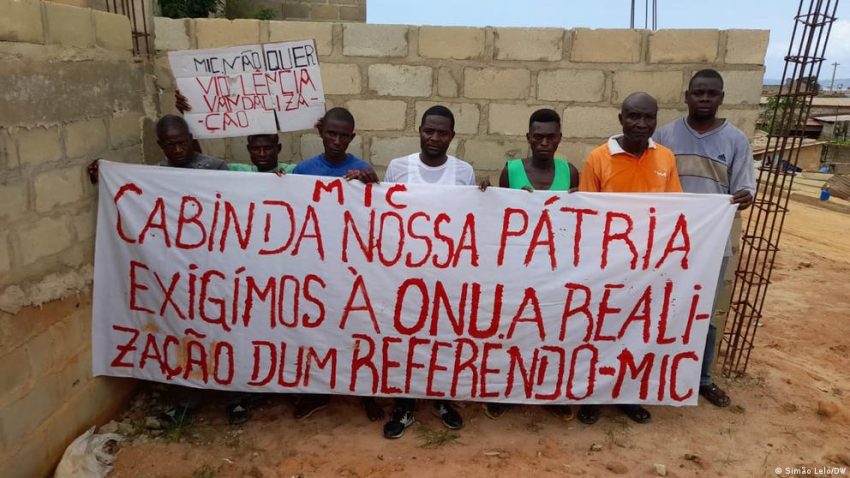 MIC, NÃO QUER
VIOLÊNCIA
VANDALIZA-
ÇÃO
MIC
CABINDA NOSSA PÁTRIA
EXIGÍMOS À ONU.A REALI-
ZAÇÃO DUM REFERENDO-MIC
© Simão Lelo/DW